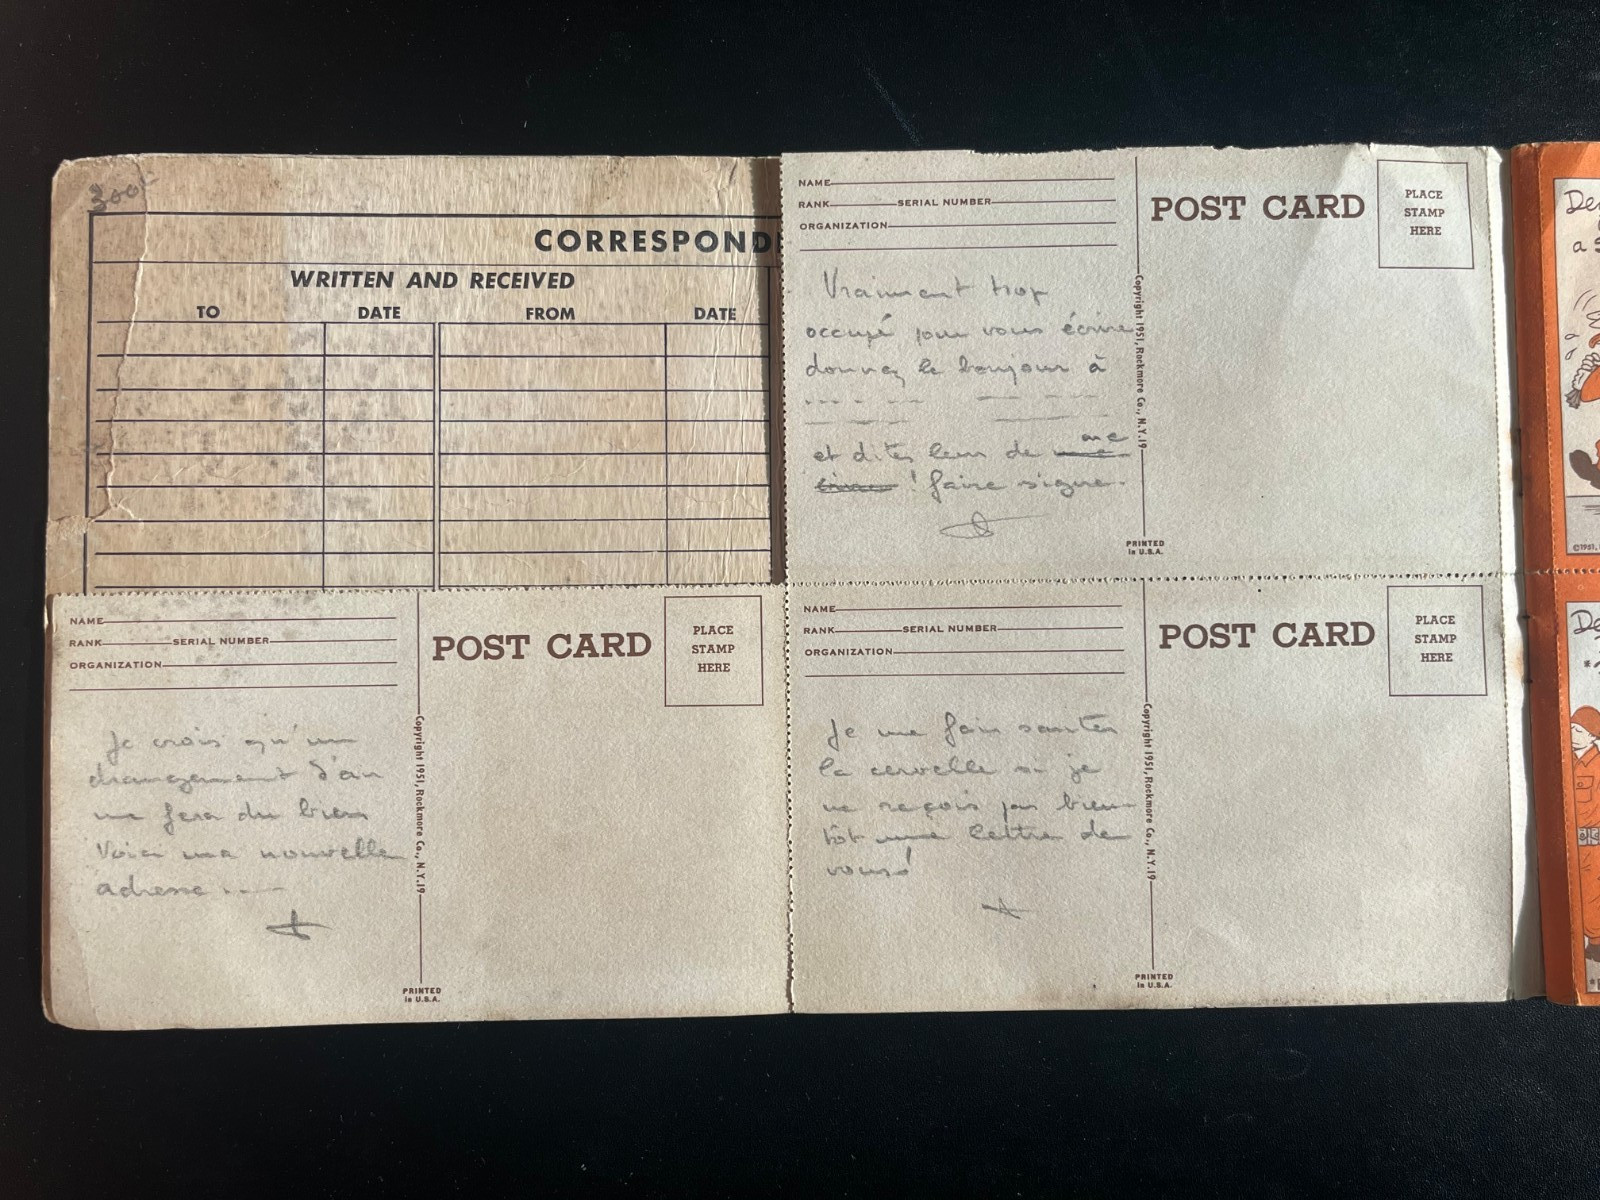 300
CORRESPOND
WRITTEN AND RECEIVED
TO DATE FROM DATE
NAME
RANK SERIAL NUMBER
ORGANIZATION
POST CARD
PLACE
STAMP
HERE
Vraiment trop
occupé pour vous écrire
donnez le bonjour à
et dites leur de me
! faire signe.
Copyright 1951, Rockmore Co., N.Y.19
PRINTED
in U.S.A.
NAME
RANK SERIAL NUMBER
ORGANIZATION
POST CARD
PLACE
STAMP
HERE
Je crois qu'un
changement d'air
me fera du bien
Voici ma nouvelle
adresse .....
Copyright 1951, Rockmore Co., N.Y.19
PRINTED
in U.S.A.
NAME
RANK SERIAL NUMBER
ORGANIZATION
POST CARD
PLACE
STAMP
HERE
Je me fais sauter
la cervelle si je
ne reçois pas bien
tôt une lettre de
vous!
Copyright 1951, Rockmore Co., N.Y.19
PRINTED
in U.S.A.
De
a S
©1951,
De